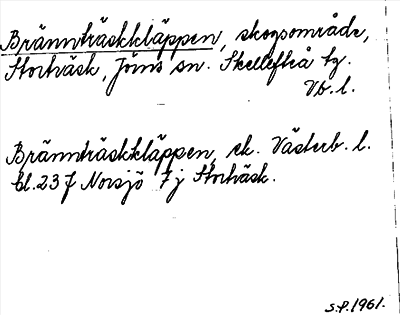 Brännträskkläppen, skogsområde,
Storträsk, Jörns sn. Skellefteå tg.
Vb. l.
Brännträskkläppen, ek. Västerb. l.
bl. 23 J Norsjö 7j Storträsk.
S.P. 1961.